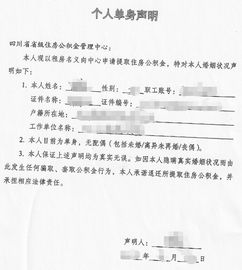 个人单身声明
四川省省级住房公积金管理中心：
本人现以租房名义向中心申请提取住房公积金，特对本人婚姻状况声
明如下：
1、本人姓名：性别：职工账号：
证件名称：证件编号：
户籍所在地：
工作单位名称：
2、本人目前为单身，无配偶（包括未婚/离异未再婚/丧偶）。
3、本人保证上述声明均为真实无误。如因本人隐瞒真实婚姻状况而由
此发生任何骗取、套取公积金行为，本人承诺退还所提取住房公积金，并
承担相应法律责任。
声明人：
年 月 日